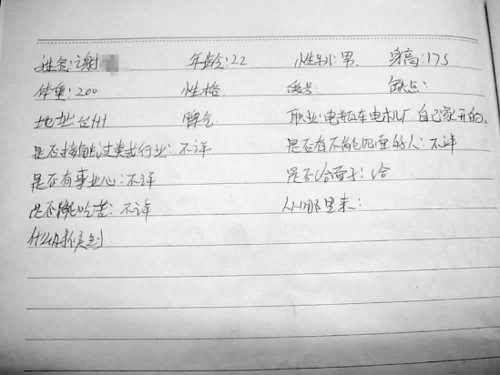 姓名:谢 年龄:22 性别:男 身高:175
体重:200 性格 爱好 缺点:
地址:台州 脾气 职业:电瓶车电机厂 自己家开的
是否接触过类此行业:不详 是否有不能见面的人:不详
是否有事业心:不详 是否给面子:给
是否能吃苦:不详 从哪里来:
什么时候到